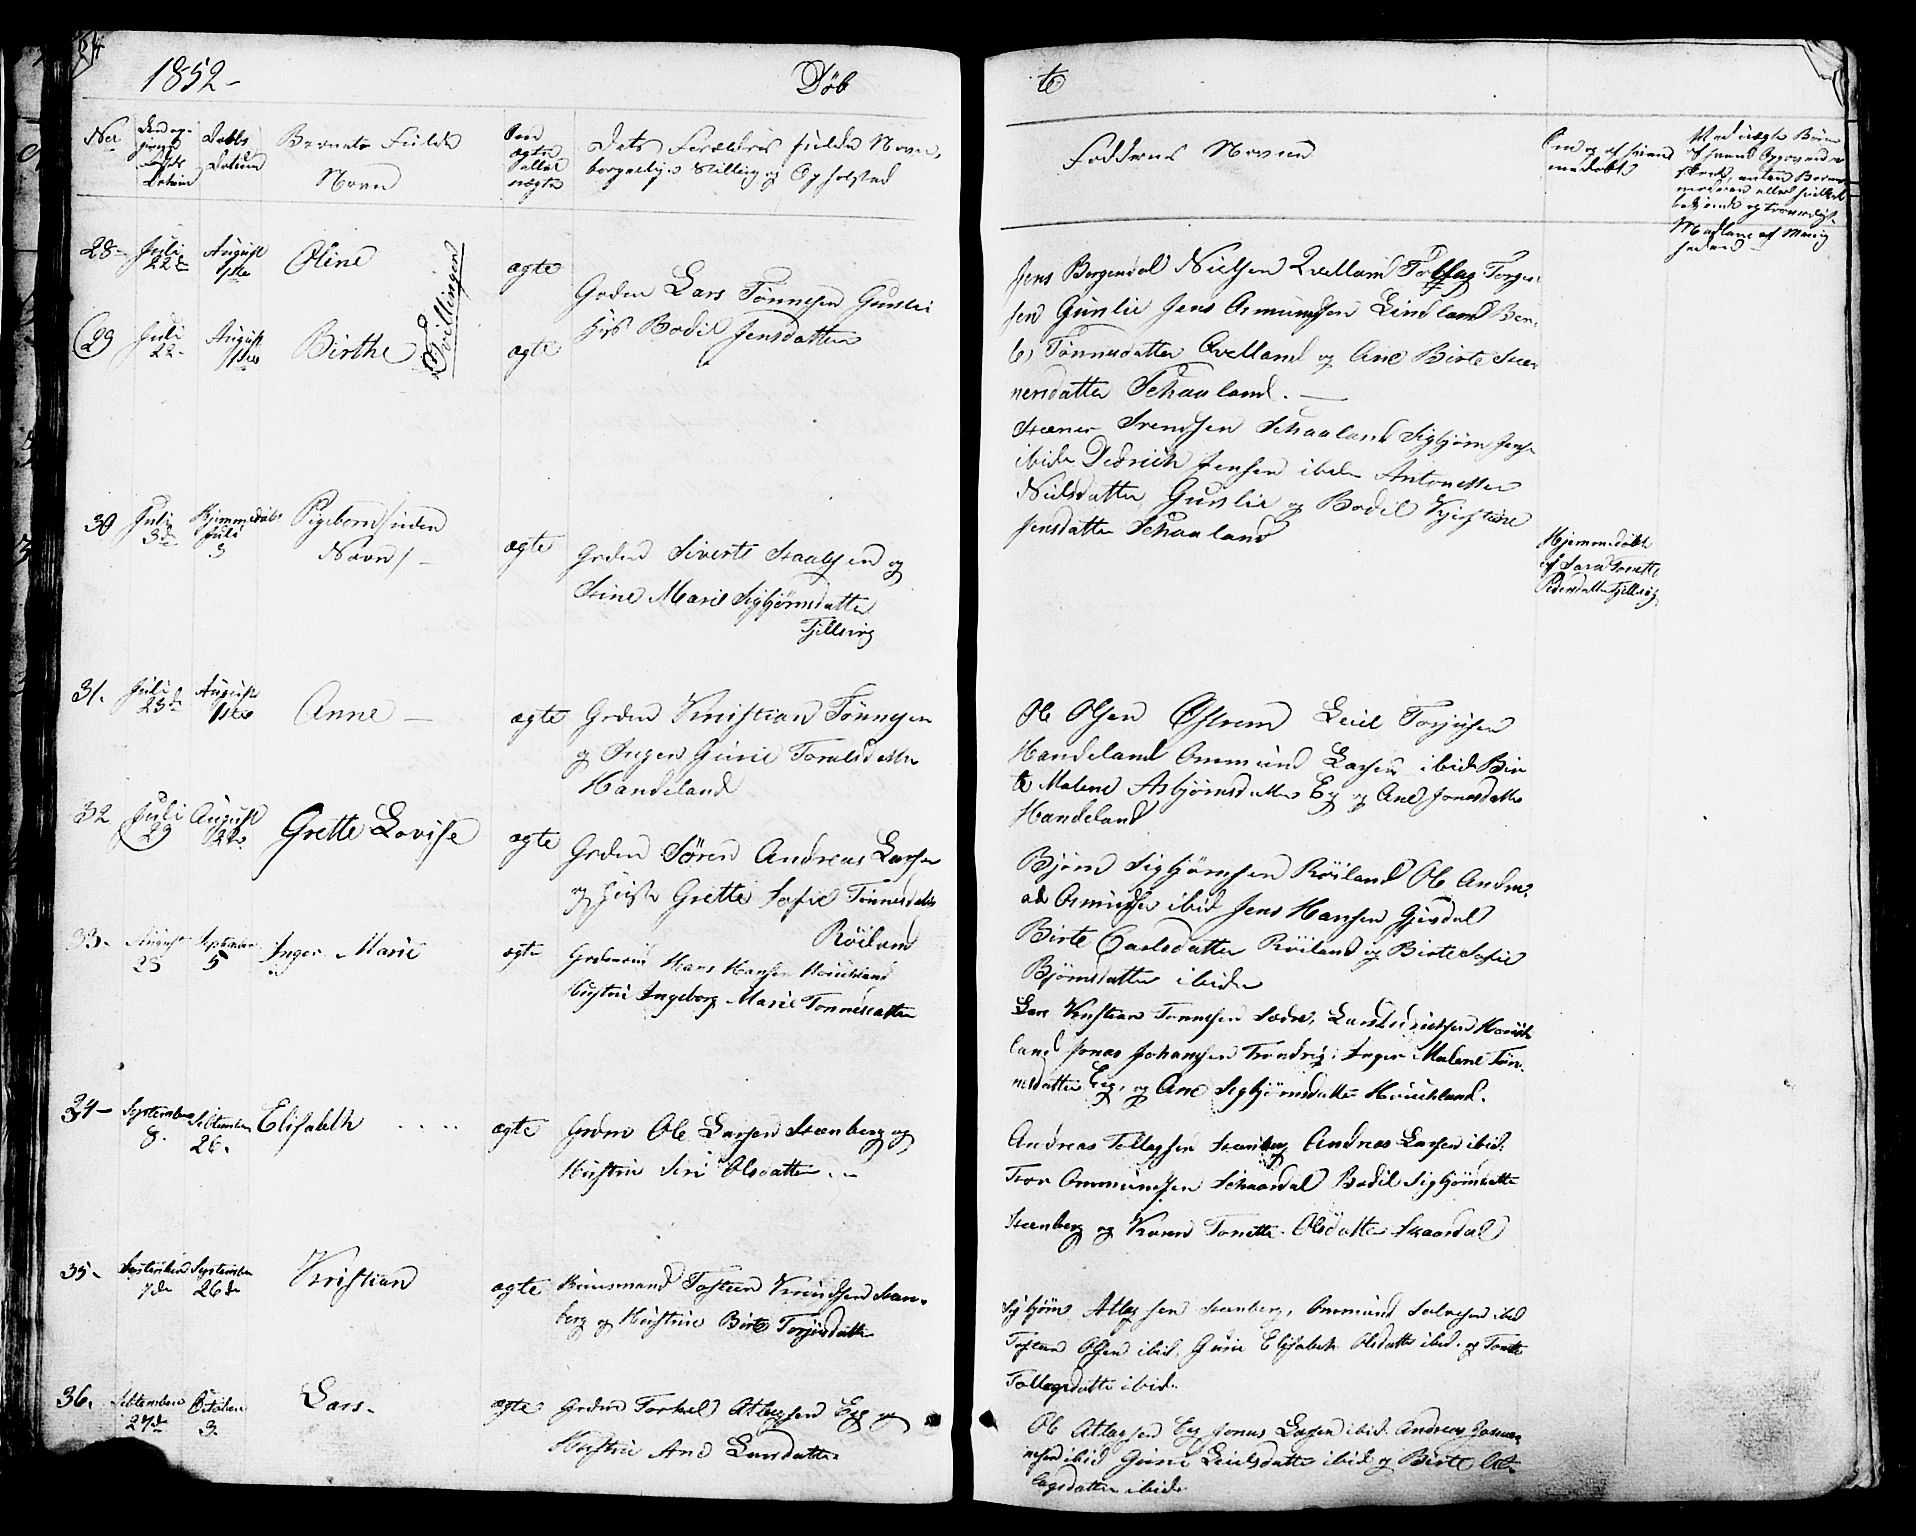 1852-
Döb
te
No
Daabs
Datum
Barnets Fulde
Navn
Om
ægte
eller
uægte
Dets Forældres fulde Navn,
borgerlige Stilling og Opholsted
Faddernes Navne
28- Juli 22de August 1ste Oline ægte
Tvillinger
Grdm Lars Tönnesen Gunslei
Hus Bodil Jensdatter
29 Juli 22- August 1ste Birthe ægte
Jens Bergendal Nielsen Qvelland Tollag Torger
sen Gunslie Jens Osmundsen Lindland Ber
te Tönnesdatter Qvelland og Ane Birte Stee
nersdatter Schaaland. —
Steener Svendsen Schaaland Sigbjörn Jens
ibide Dedrich Jensen ibide Antonette
Nielsdatter Gunslie og Bodil Kjistine
Jensdatter Schaaland
30 Juli 3de Hjemmedöbt Juli 3 Pigebarn /uden
Navn/-
ægte Grdm Siverts Staalesen og
Stine Marie Sigbjörnsdatter
Fjellsvig
Hjemmedöbt
af Sara Tonette
Pedersdatter Fjellsvig
31. Juli 23de August 1ste Anne - ægte Grdm Kristian Tönnesen
og Inger Gurie Tomasdatter
Handeland
Ole Olsen Östrem Leiel Torjusen
Handeland Ommund Larsen ibide Bir
te Malene Asbjörnsdatter Eg og Ane Jonasdatter
Handeland
32 Juli 29 August 22 Grette Lovise ægte Grdm Sören Andreas Larsen
og Hustr Grette Sofie Tönnesdatter
Röiland
Björn Sigbjörnsen Röiland Ole Andre
as Osmundsen ibid Jens Hansen Gjersdal
Birte Carlsdatter Röiland og Birte Sofie
Björnsdatter ibide
33- August 23 September 5 Inger Marie ægte Gaardmand Hans Hansen Houchland
Hustrue Ingeborg Marie Tonnesdatter
Lars Kristian Tonnesen Sædre, Lars Didriksen Houch
land Jonas Johannsen Trondvig, Inger Malene Tön
nesdatter Eeg, og Ane Sigbjörnsdatter Houchland.
34- September 8. September 26. Elisabeth .... ægte Grdm Ole Larsen Steenberg og
Hustrue Siri Olsdatter. -
Andreas Tollagsen Steenberg Andreas Larsen ibid.
Tore Ommundsen Schaardal Bodil Sigbjörnsdatter
Steenberg og Karen Tonette Olsdatter Skaardal
35- September 7de September 26de Kristian ægte Huusmand Tosteen Knudsen Steen-
berg og Hustrue Birte Torjusdatter
Sigbjörn Atlagsen Steenberg, Ommund Salvesen ibid
Tosteen Olsen ibid, Gurie Elisabeth Olsdatter ibid. og Tonette
Tollagsdatter ibide
36. September 27de October 3. Lars. ægte Grdm Torkel Atlagsen Eeg og
Hustrue Ane Larsdatter
Ole Atlagsen Eeg Jonas Larsen ibid. Andreas
ibid Gurine Leielsdatter ibid og Birte At
lagsdatter ibide